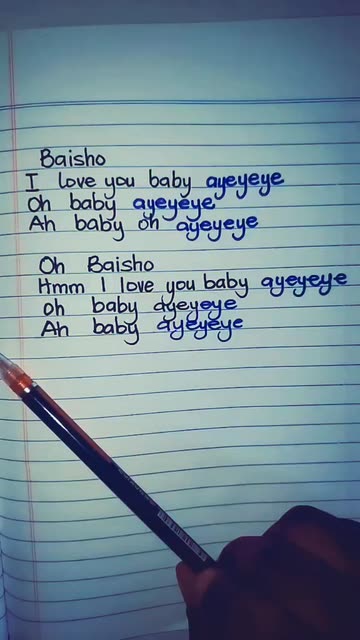 Baisho
I love you baby ayeyeye
Oh baby ayeyeye
Ah baby oh ayeyeye
Oh Baisho
Hmm I love you baby ayeyeye
oh baby ayeyeye
Ah baby ayeyeye